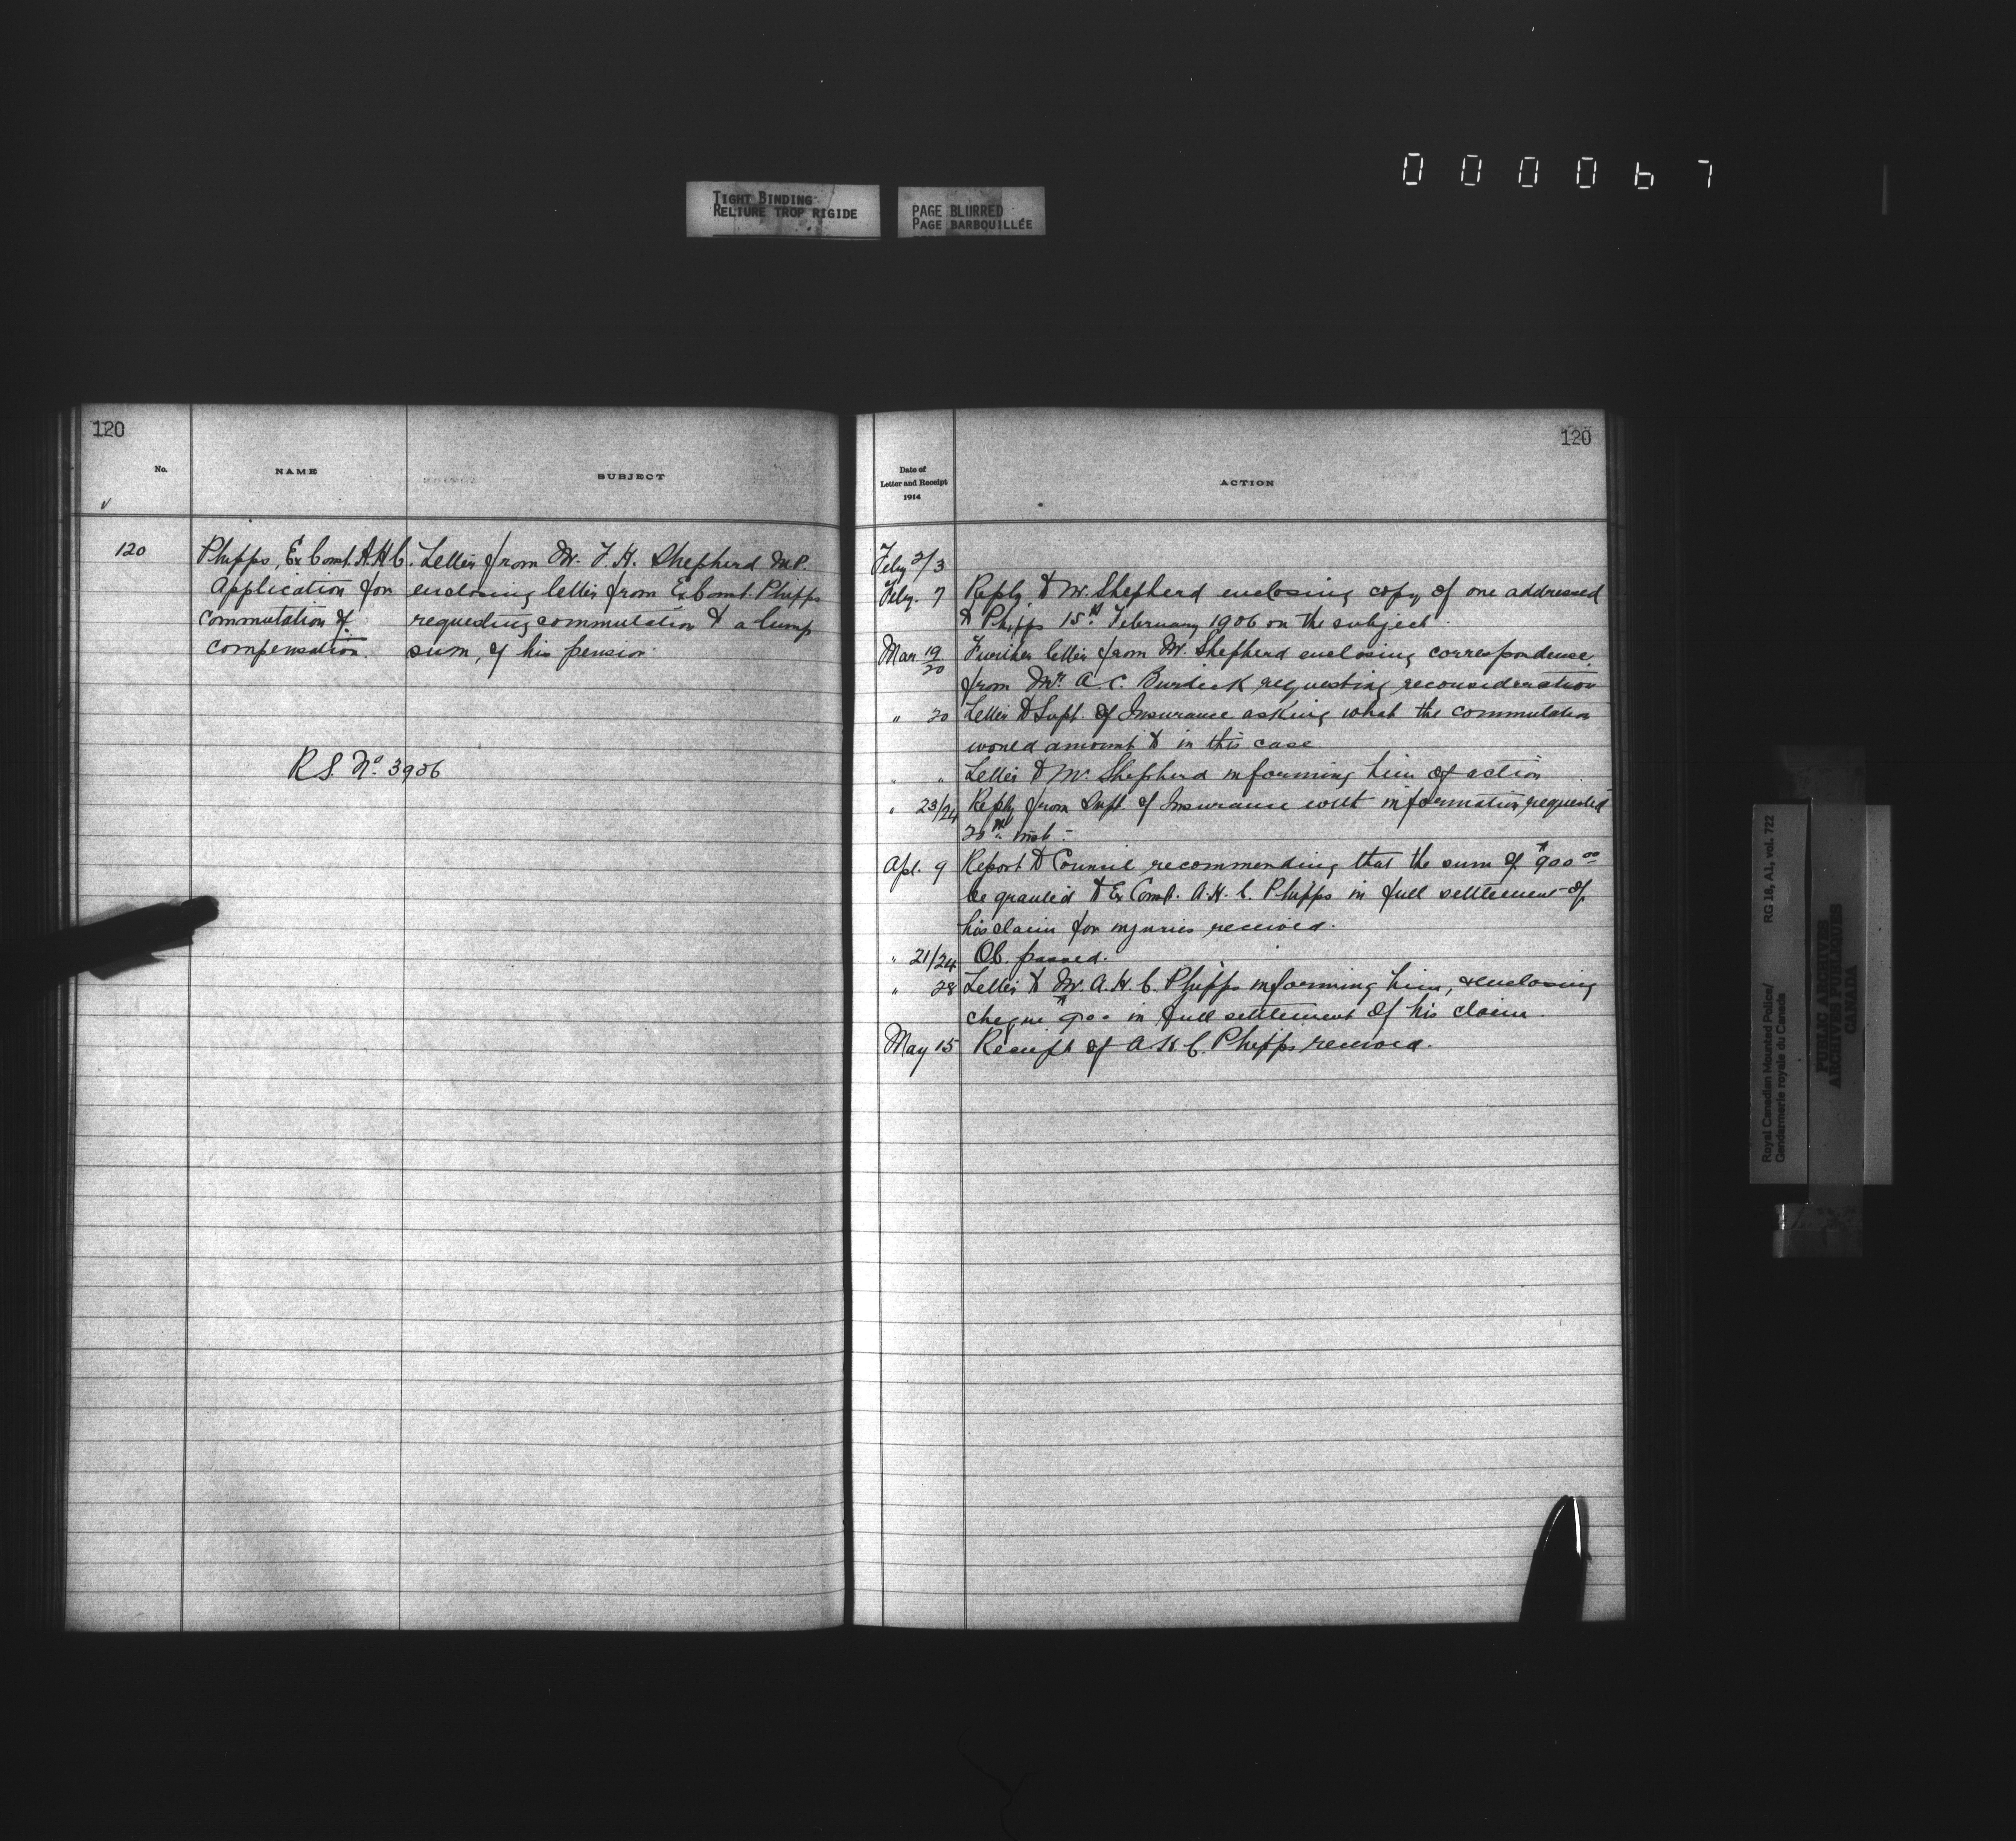 000067
TIGHT BINDING
RELIURE TROP RIGIDE
PAGE BLURRED
PAGE BARBOUILLÉE
120
No.
NAME
SUBJECT
120 Phipps, Ex Const. A.H.C. Letter from Mr. F. H. Shepherd M.P.
Application for enclosing letter from Ex Const. Phipps
commutation of requesting commutation to a lump
compensation. sum, of his pension
R.S. No. 3906
120
Date of
Letter and Receipt
1914
ACTION
Feby 2/3
Feby. 7 Reply to Mr. Shepherd enclosing copy of one addressed
to Phipps 15th February 1906 on the subject.
Mar 19/20 Further letter from Mr. Shepherd enclosing correspondence
from Mr. A. C. Burdick requesting reconsideration
" 20 Letter to Supt. of Insurance asking what the commutation
would amount to in this case
" " Letter to Mr. Shepherd informing him of action
" 23/24 Reply from Supt. of Insurance with information requested
20th inst.-
Apl. 9 Report to Council recommending that the sum of $900 00
be granted to Ex Const. A. H. C. Phipps in full settlement of
his claim for injuries received.
" 21/24 O.C. passed.
" 28 Letter to Mr. A. H. C. Phipps informing him, & enclosing
cheque $900 in full settlement of his claim
May 15 Receipt of A H C. Phipps received.
Royal Canadian Mounted Police/ RG 18, A1, vol. 722
Gendarmerie royale du Canada
PUBLIC ARCHIVES
ARCHIVES PUBLIQUES
CANADA